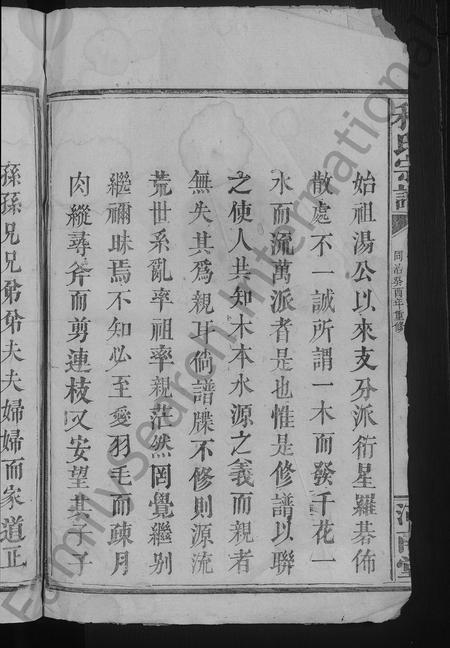 氏宗譜
同治癸酉年重修
始祖湯公以來支分派衍星羅碁佈
散處不一誠所謂一木而發千花一
水而流萬派者是也惟是修譜以聯
之使人共知木本水源之義而親者
無失其爲親耳倘譜牒不修則源流
荒世系亂率祖率親茫然罔覺繼别
繼禰昧焉不知必至愛羽毛而疎月
肉縱尋斧而剪連枝又安望其子子
孫孫兄兄弟弟夫夫婦婦而家道正
FamilySearch International